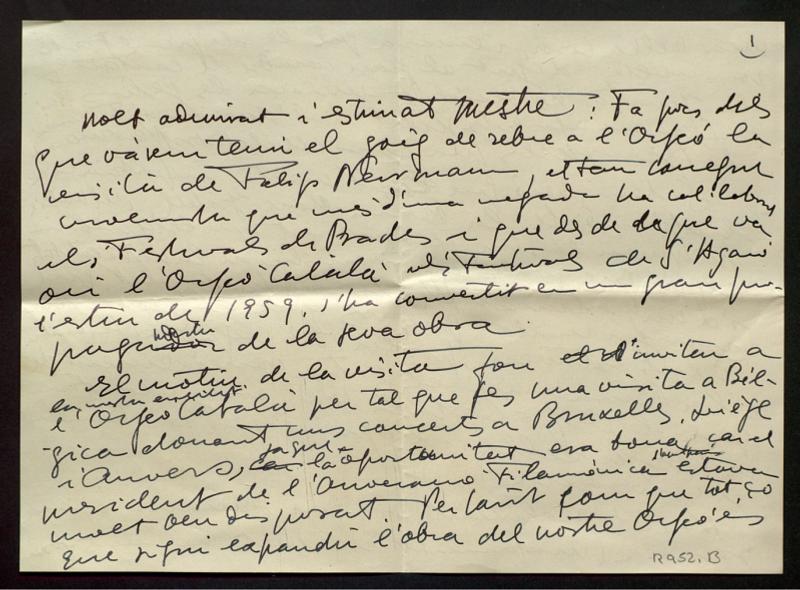 1
Molt admirat i estimat Mestre: Fa pocs dies
que vàrem tenir el goig de rebre a l'Orfeó la
visita de Felip Newmann, el tan conegut
violinista que més d'una vegada ha col·laborat
els Festivals de Prades i que des de que va
oir l'Orfeó Català als Festivals de S'Agaró
l'estiu de 1959, s'ha convertit en un gran pro-
pagador de la seva obra.
El motiu de la visita fou invitar a
l'Orfeó Català per tal que fes una visita a Bèl-
gica donant uns concerts a Bruxelles, Liège
i Anvers, ja que la oportunitat era bona, car el
president de l'Anversano Filamònica estava
molt ben disposat. Per tant com que tot ço
que sigui expandir l'obra del nostre Orfeó és
R952.B